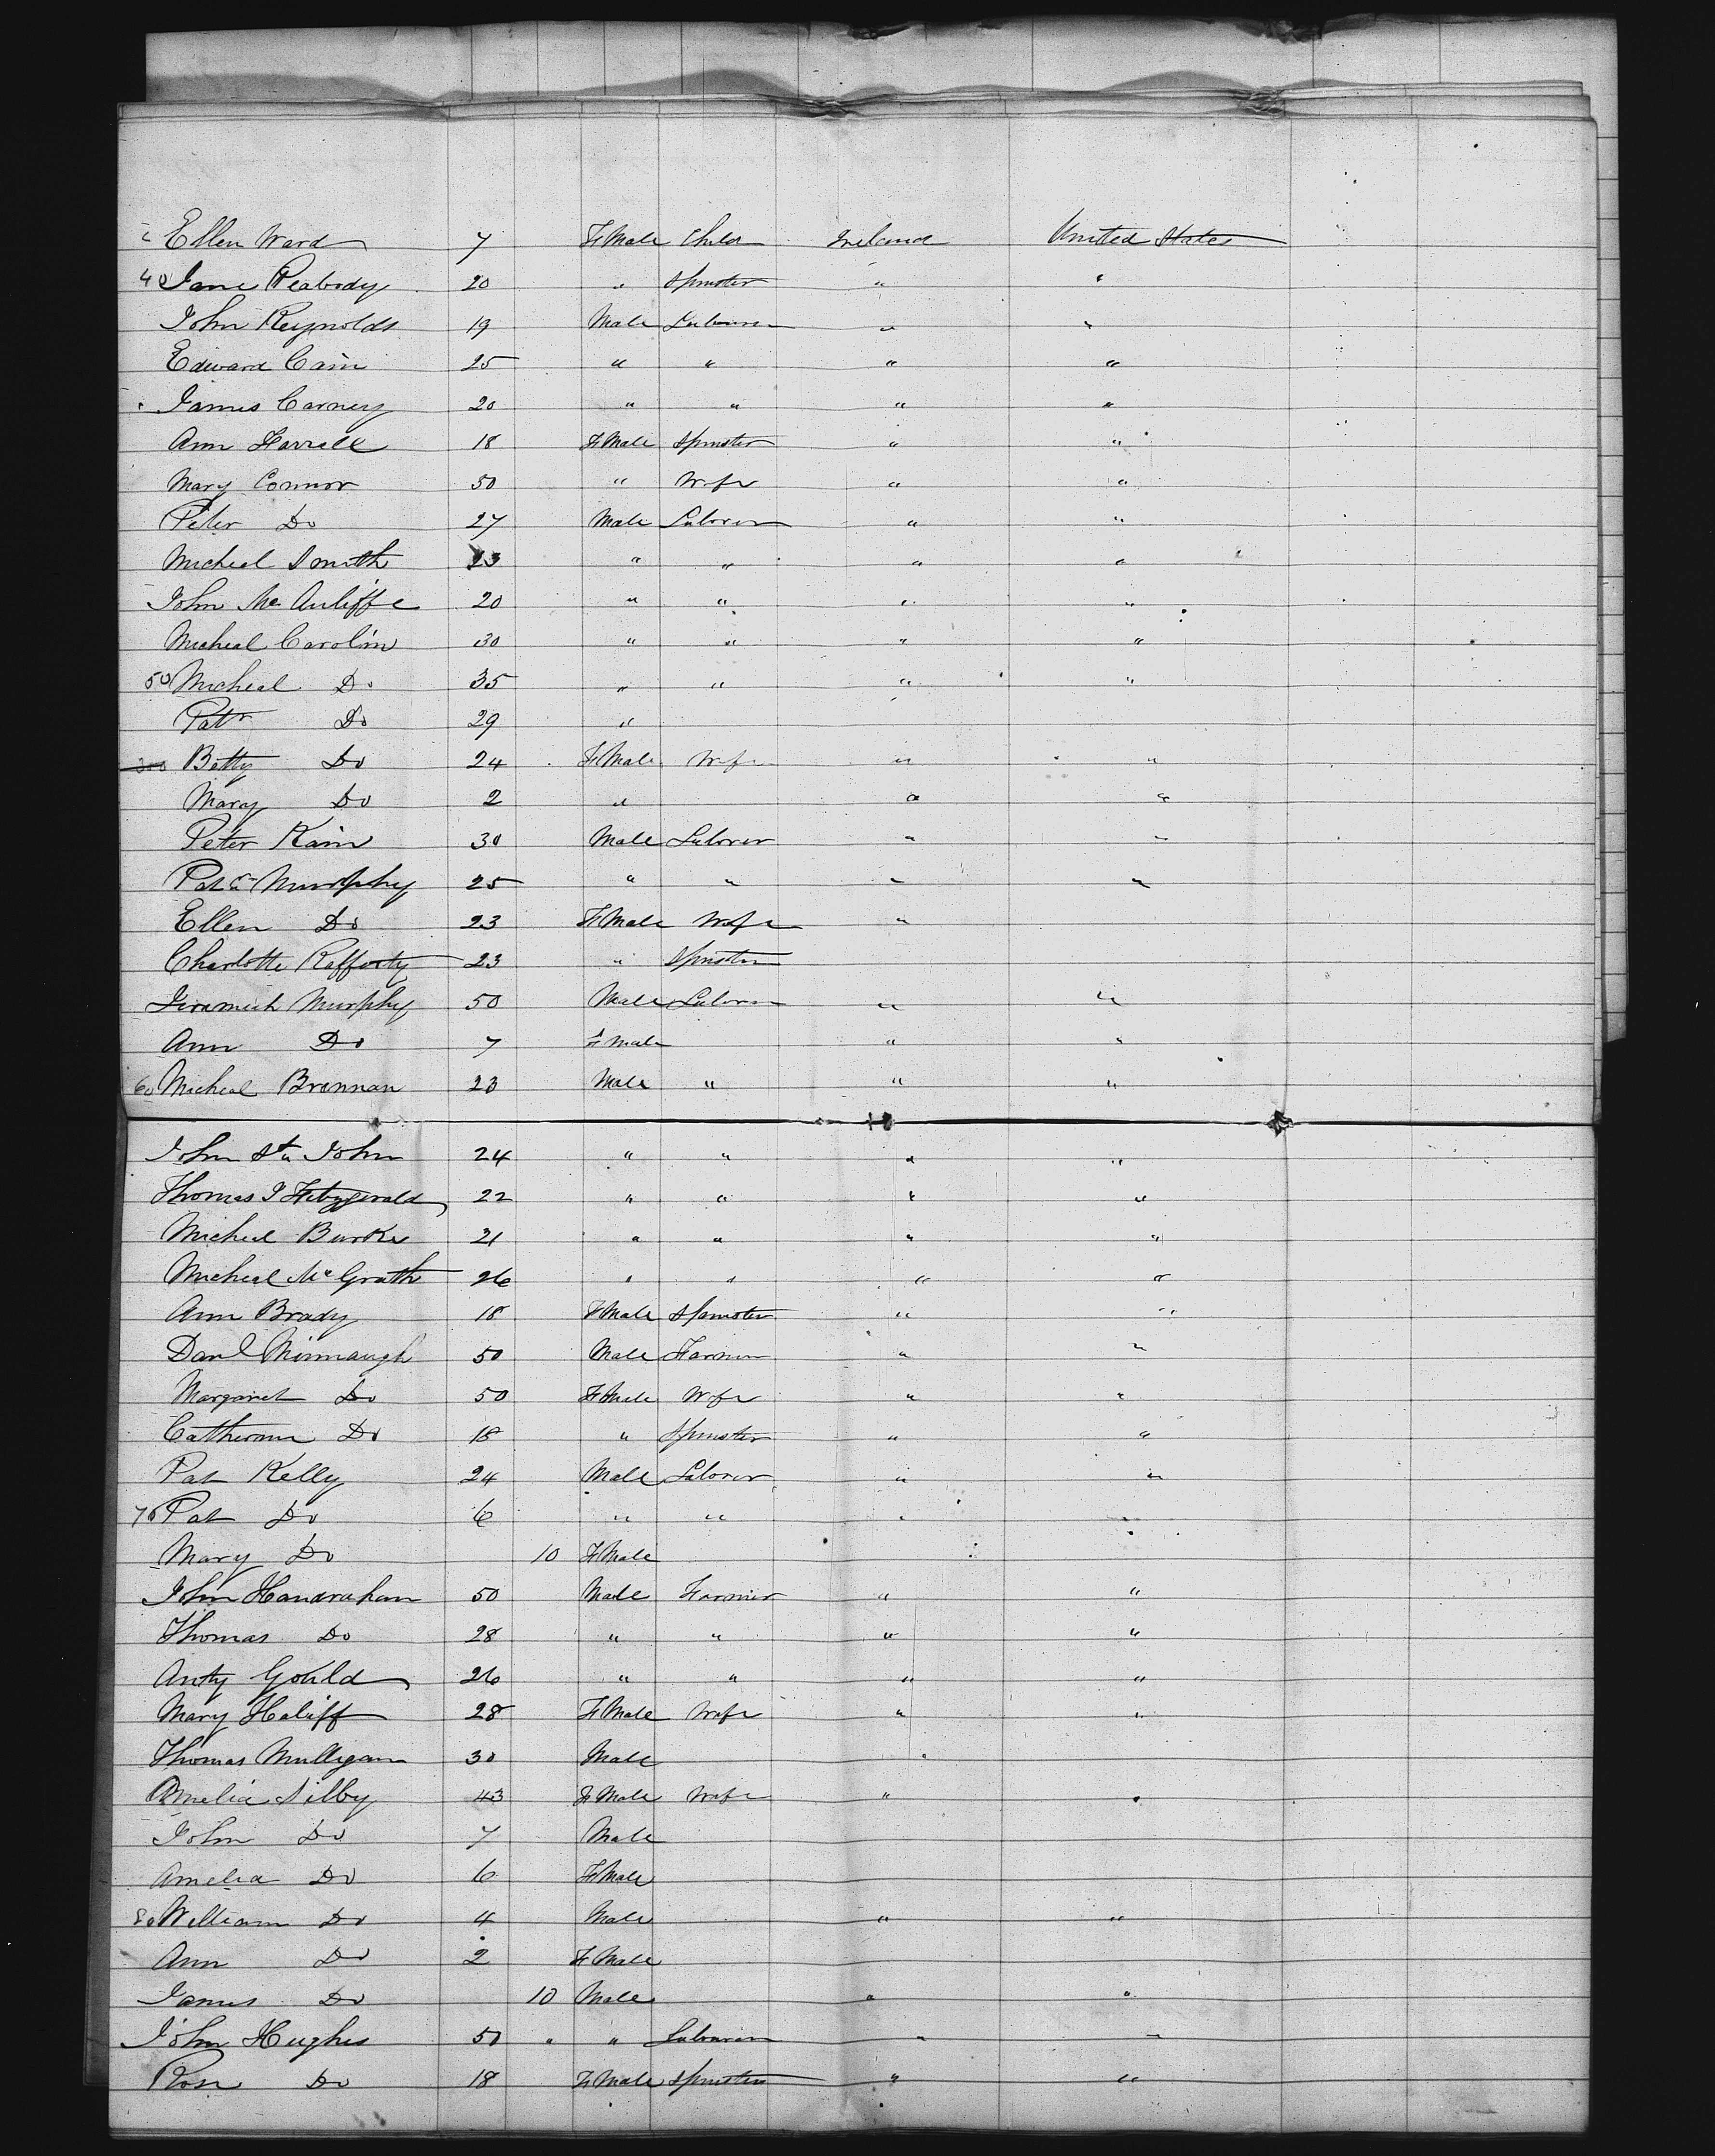 Ellen Ward 7 F Male Child Ireland United States
40 Jane Peabody 20 " Spinster " "
John Reynolds 19 Male Laborer " "
Edward Cain 25 " " " "
James Carney 20 " " " "
Ann Farrell 18 F Male Spinster " "
Mary Connor 50 " Wife " "
Peter Do 27 Male Laborer " "
Micheal Smith 23 " " " "
John McAuliffe 20 " " " "
Micheal Carolin 30 " " " "
50 Micheal Do 35 " " " "
Patk Do 29 "
300 Betty Do 24 F Male Wife " "
Mary Do 2 " " "
Peter Kain 30 Male Laborer " "
Patk Murphy 25 " " " "
Ellen Do 23 F Male Wife "
Charlotte Rafferty 23 " Spinster
Jeremiah Murphy 50 Male Laborer " "
Ann Do 7 F Male " "
60 Micheal Brennan 23 Male " " "
John St John 24 " " " "
Thomas J Fitzgerald 22 " " " "
Micheal Burke 21 " " " "
Micheal McGrath 26 " " " "
Ann Brady 18 F Male Spinster " "
Danl Minnaugh 50 Male Farmer " "
Margaret Do 50 F Male Wife " "
Catherine Do 18 " Spinster " "
Pat Kelly 24 Male Laborer " "
70 Pat Do 6 " " " "
Mary Do 10 F Male
John Hanarahan 50 Male Farmer " "
Thomas Do 28 " " " "
Anty Gould 26 " " " "
Mary Haliff 28 F Male Wife " "
Thomas Mulligan 30 Male "
Amelia Silby 43 F Male Wife " "
John Do 7 Male
Amelia Do 6 F Male
80 William Do 4 Male " "
Ann Do 2 F Male
James Do 10 Male " "
John Hughes 50 " " Laborer " "
Rose Do 18 F Male Spinster " "